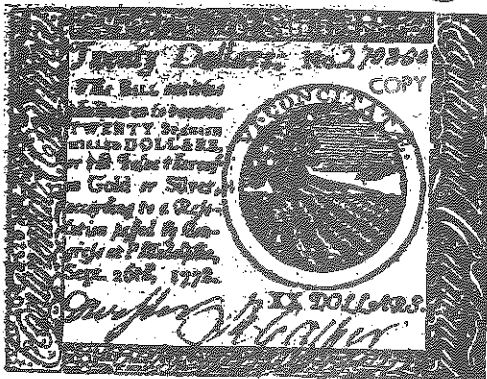 Twenty Dollars. No.
COPY
This Bill entitles
the Bearer to receive
TWENTY Spanish
milled DOLLARS,
or the Value thereof
in Gold or Silver,
according to a Reso-
lution passed by Con-
gress at Philadelphia,
Sept. 26th, 1778.
VI CONCITATÆ.
XX DOLLARS.